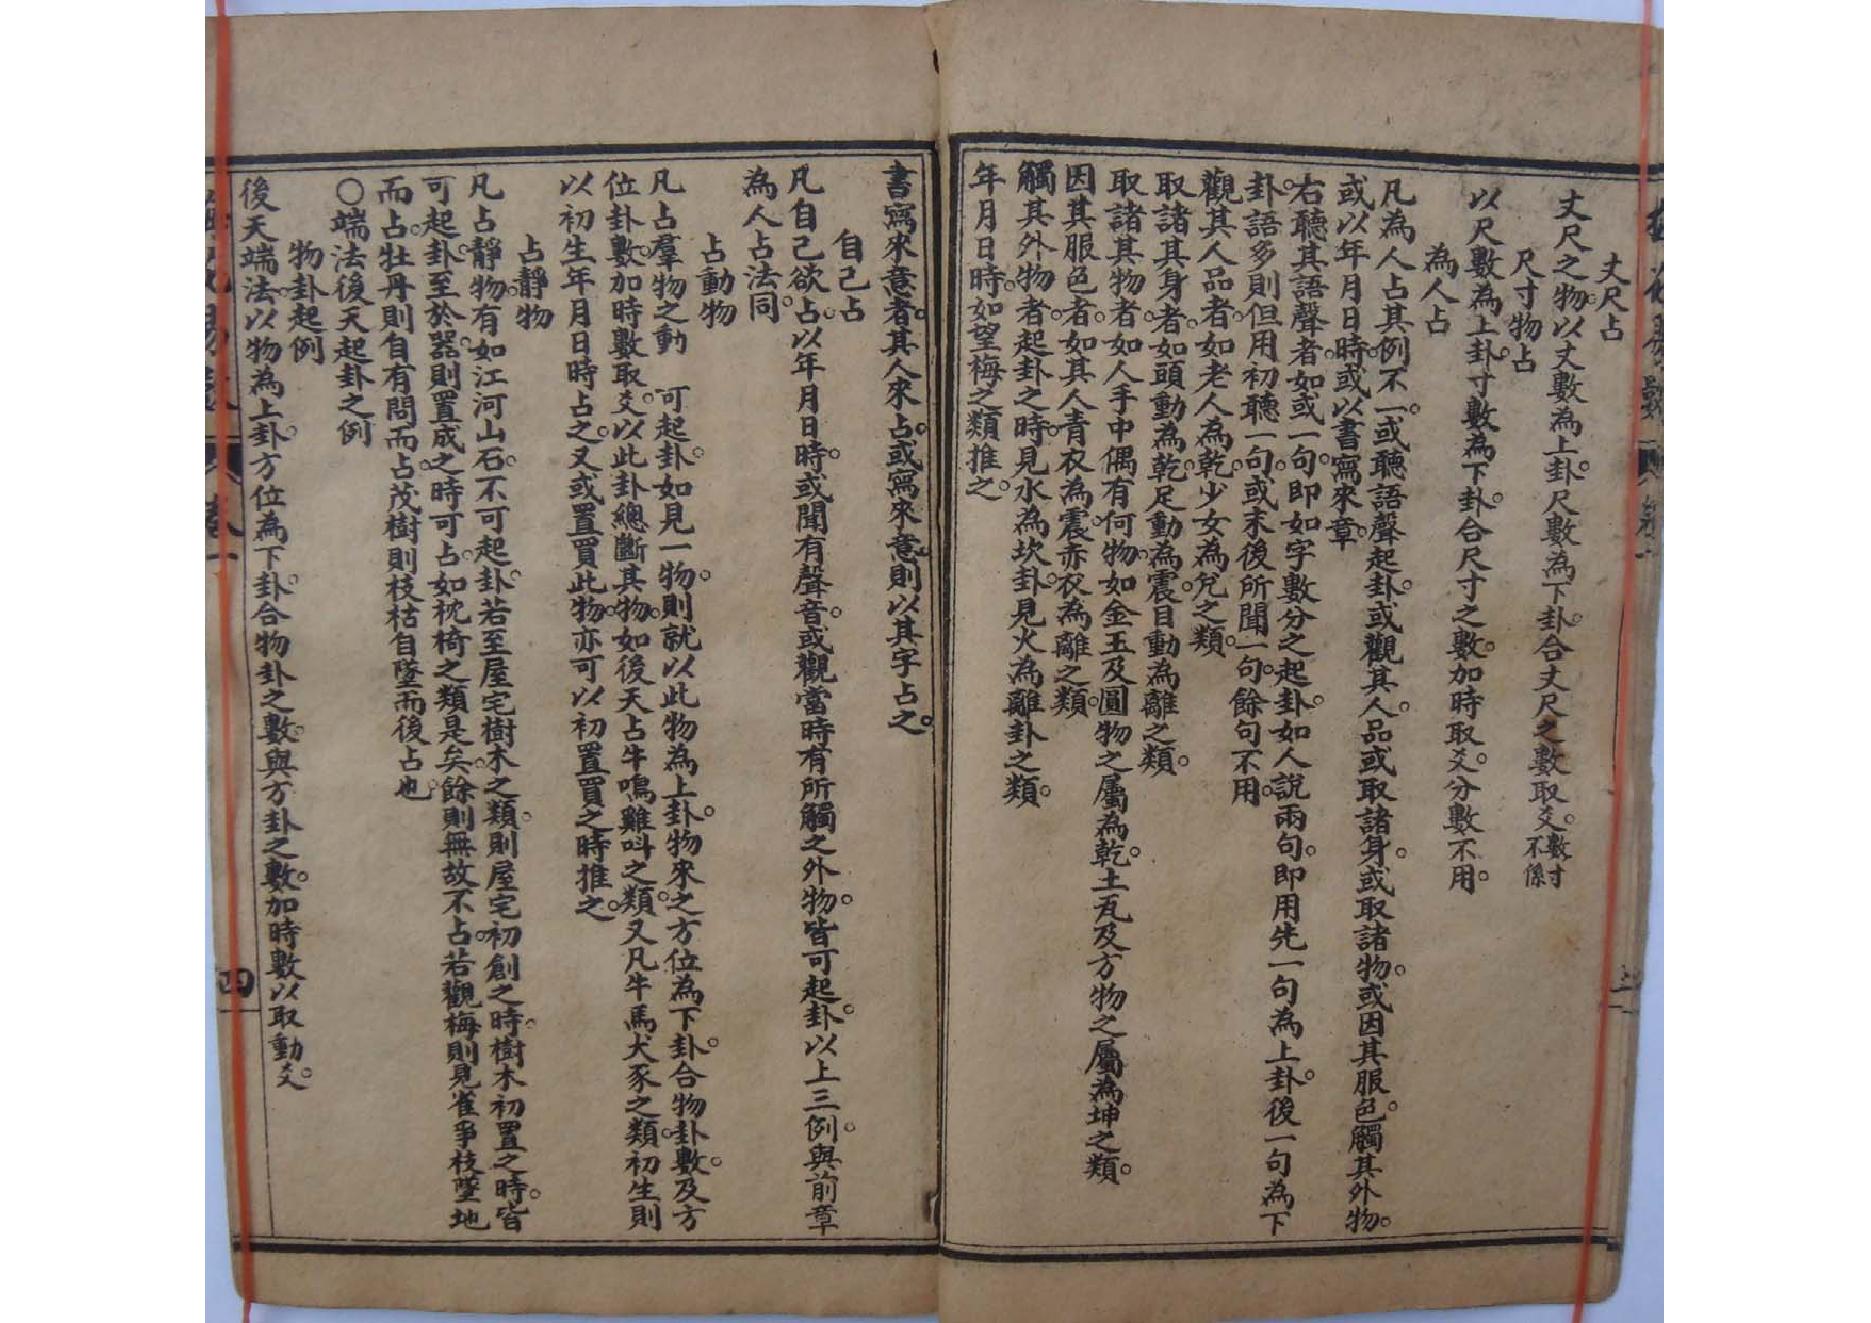 丈尺占
丈尺之物。以丈數為上卦。尺數為下卦。合丈尺之數取爻。數寸不係
尺寸物占
以尺數為上卦。寸數為下卦。合尺寸之數。加時取爻。分數不用。
為人占
凡為人占其例不一。或聽語聲起卦。或觀其人品。或取諸身。或取諸物。或因其服色。觸其外物。
或以年月日時。或以書寫來章。
右聽其語聲者。如或一句。即如字數分之起卦。如人說兩句。即用先一句為上卦。後一句為下
卦。語多則但用初聽一句。或末後所聞一句。餘句不用。
觀其人品者。如老人為乾。少女為兌之類。
取諸其身者。如頭動為乾。足動為震。目動為離之類。
取諸其物者。如人手中偶有何物。如金玉及圓物之屬為乾。土瓦及方物之屬為坤之類。
因其服色者。如其人青衣為震。赤衣為離之類。
觸其外物者。起卦之時。見水為坎卦。見火為離卦之類。
年月日時。如望梅之類推之。
書寫來意者。其人來占。或寫來意。則以其字占之。
自己占
凡自己欲占。以年月日時。或聞有聲音。或觀當時有所觸之外物。皆可起卦。以上三例。與前章
為人占法同。
占動物
凡占羣物之動 可起卦。如見一物。則就以此物為上卦。物來之方位為下卦。合物卦數。及方
位卦數。加時數取爻。以此卦總斷其物。如後天占牛鳴雞叫之類。又凡牛馬犬豕之類。初生則
以初生年月日時占之。又或置買此物。亦可以初置買之時推之。
占靜物
凡占靜物。有如江河山石。不可起卦。若至屋宅樹木之類。則屋宅初創之時。樹木初置之時。皆
可起卦。至於器。則置成之時可占。如枕椅之類是矣。餘則無故不占。若觀梅則見雀爭枝墜地
而占。牡丹則自有問而占。茂樹則枝枯自墜而後占也。
〇端法後天起卦之例
物卦起例
後天端法。以物為上卦。方位為下卦。合物卦之數。與方卦之數。加時數以取動爻。
四